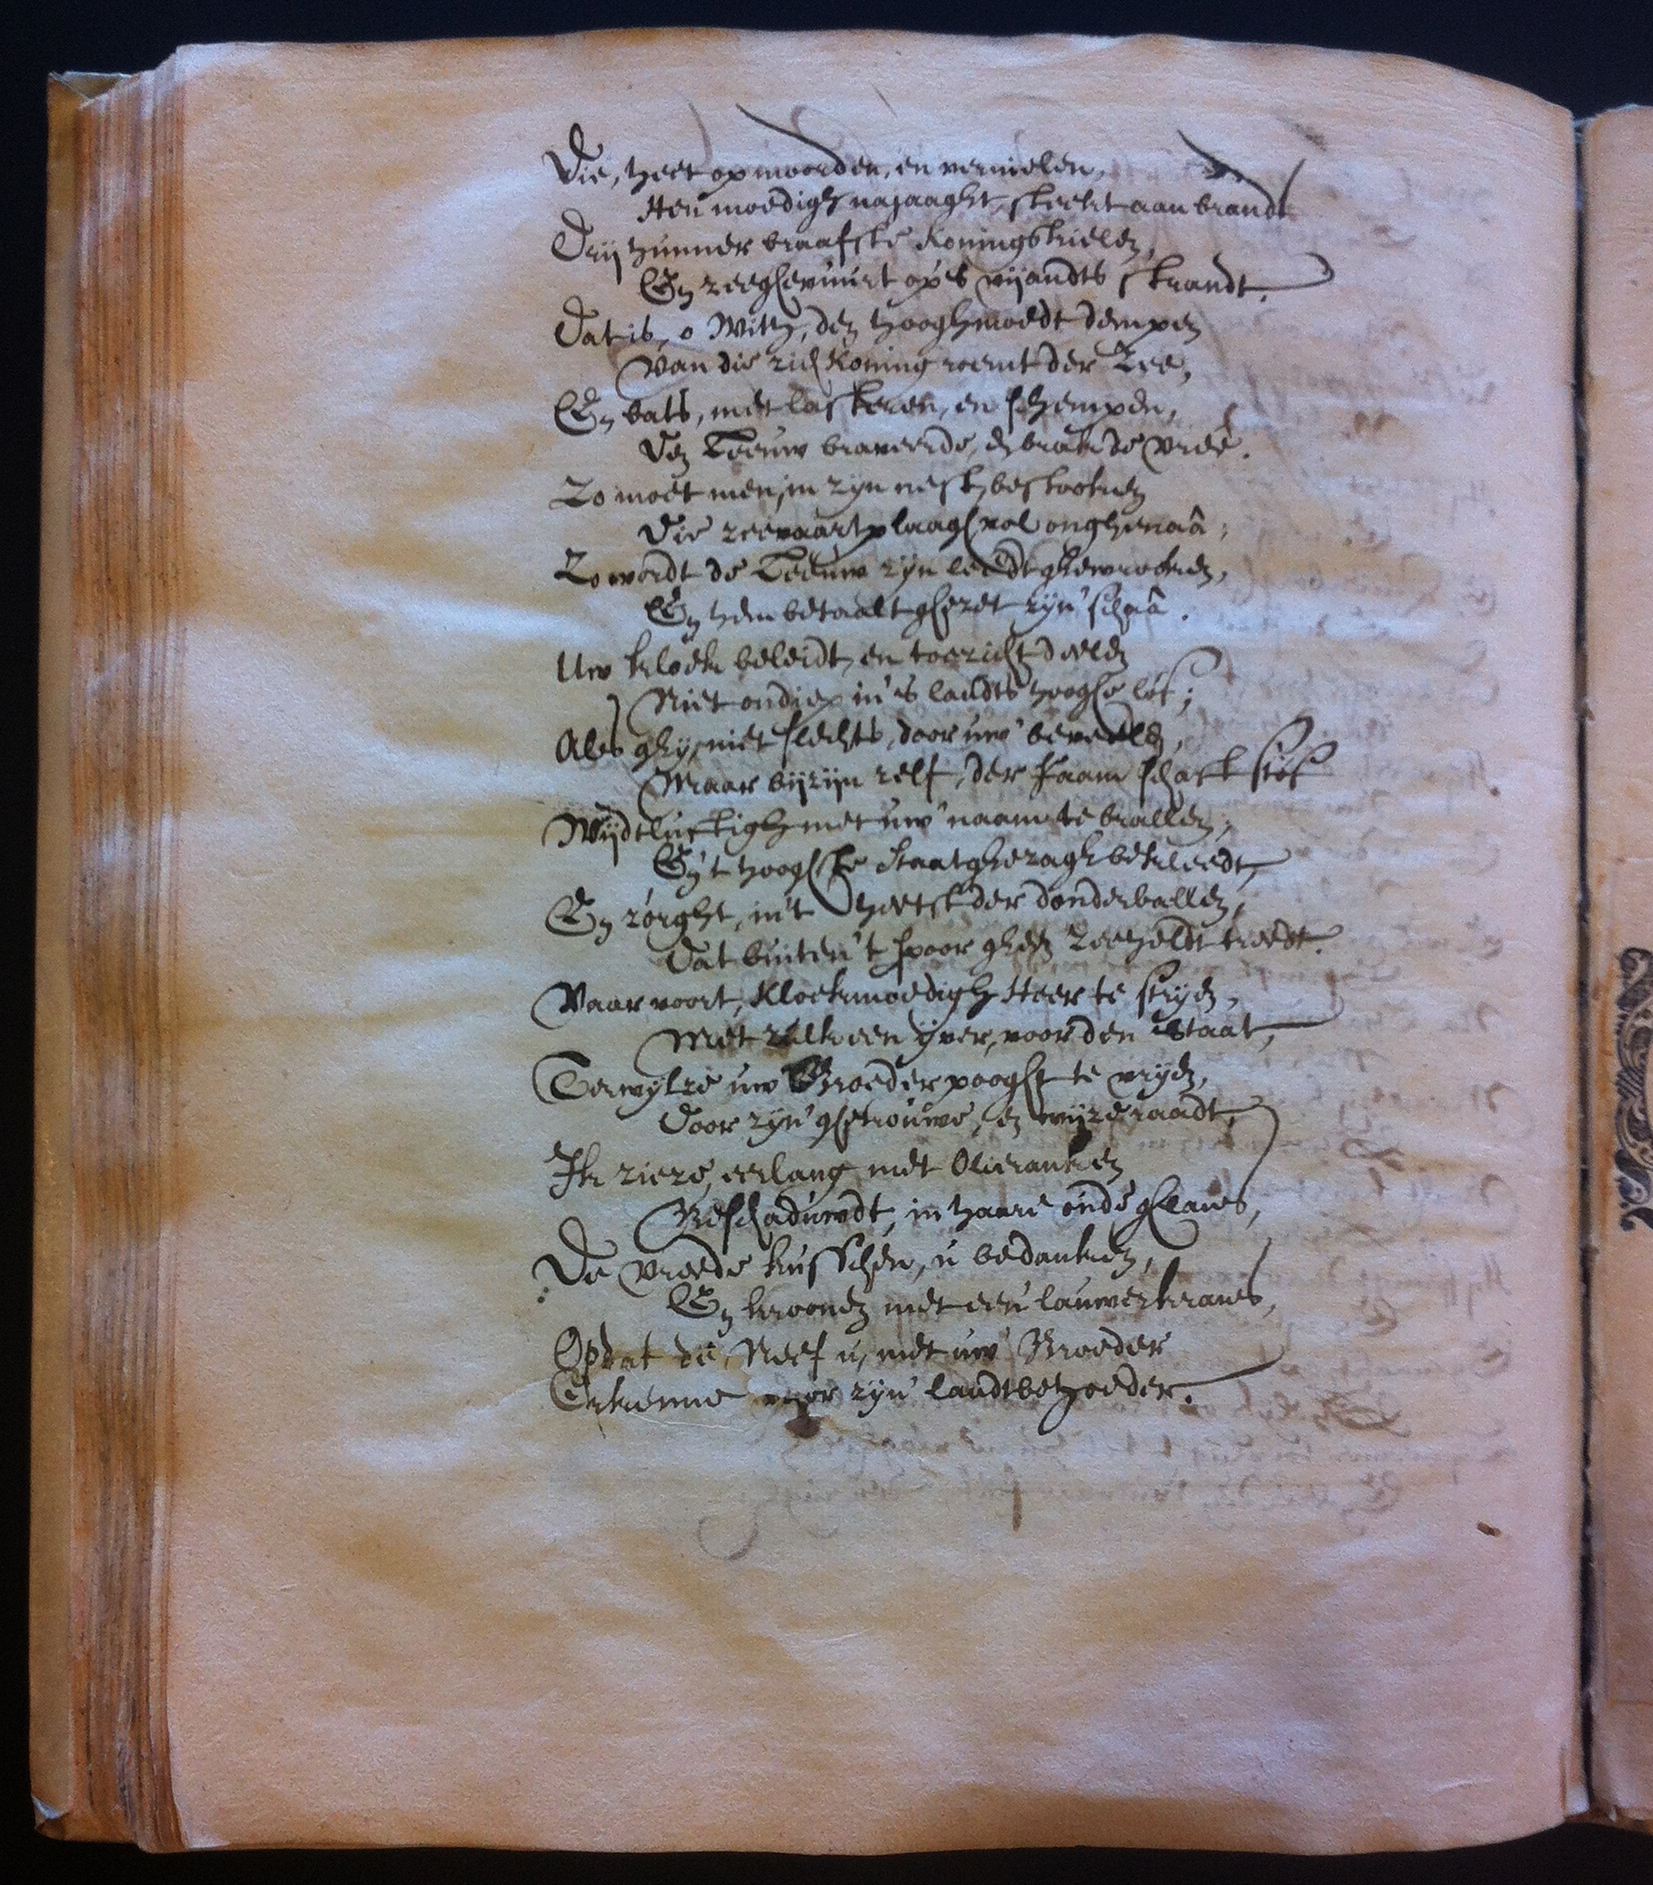 Die, heet op moorden, en vernielen,
Hen moedigh najaaght, steekt aan brandt
Drij hunner braafste Koningskielen,
En zeeghevuurt op 's vijandts strandt.
Dat is, o With, den hooghmoedt dempen
Van die zich Koning roemt der Zee,
En bats, met lasteren, en schempen,
Den Leeuw braveerde, en brak de vreê.
Zo moet men, in zyn nest, bestooken
Die zeevaart plaagh, vol onghenaâ;
Zo wordt de Leeuw zyn leedt ghewrooken,
En hem betaalt ghezet zyn' schaâ.
Uw kloek beleidt, en toezicht deelen
Niet ondiep in 's landts hooghe lof;
Als ghy, niet slechts, door uw' beveelen,
Maar bijzijn zelf, der Faam schaft stof
Wijdtluftigh met uw' naam te brallen,
Gy 't hooghste Staatghezagh bekleedt,
En zorght, in 't heetst der donderballen,
Dat buiten 't spoor gheen Zeeheldt treedt.
Vaar voort, Kloekmoedigh Heer te stryden,
Met zulk een yver, voor den Staat,
Terwyl ze uw Broeder pooght te vryen,
Door zyn' ghetrouwe, en wijze raadt,
Ik zie ze, eerlang met Olieranken
Beschaduwdt, in haare oude ghlans,
De vreede kusschen, u bedanken,
En kroonen met een' lauwerkrans,
Opdat de Neef u, met uw' Broeder
Erkenne voor zyn' landtbehoeder.